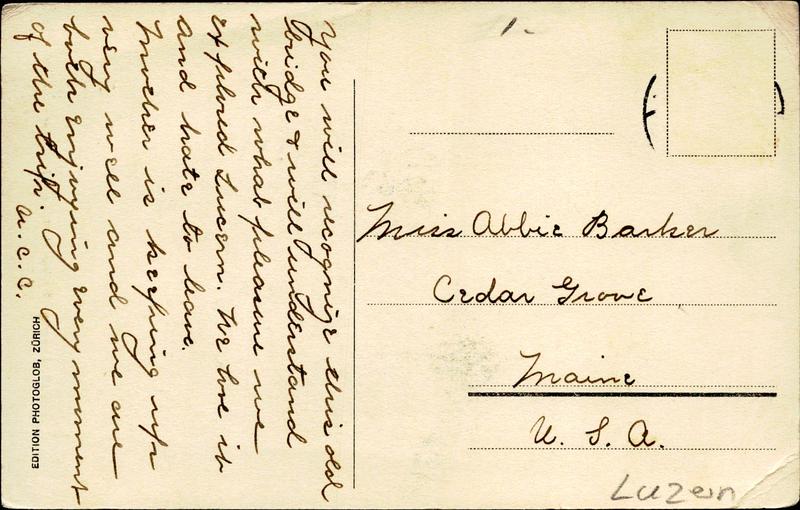 You will recognize this old
bridge & will understand
with what pleasure we
explored Lucern. We love it
and hate to leave.
Mother is keeping up
very well and we are
both enjoying every moment
of the trip.
A. C. C.
EDITION PHOTOGLOB, ZÜRICH
Miss Abbie Barker
Cedar Grove
Maine
U. S. A.
Luzern